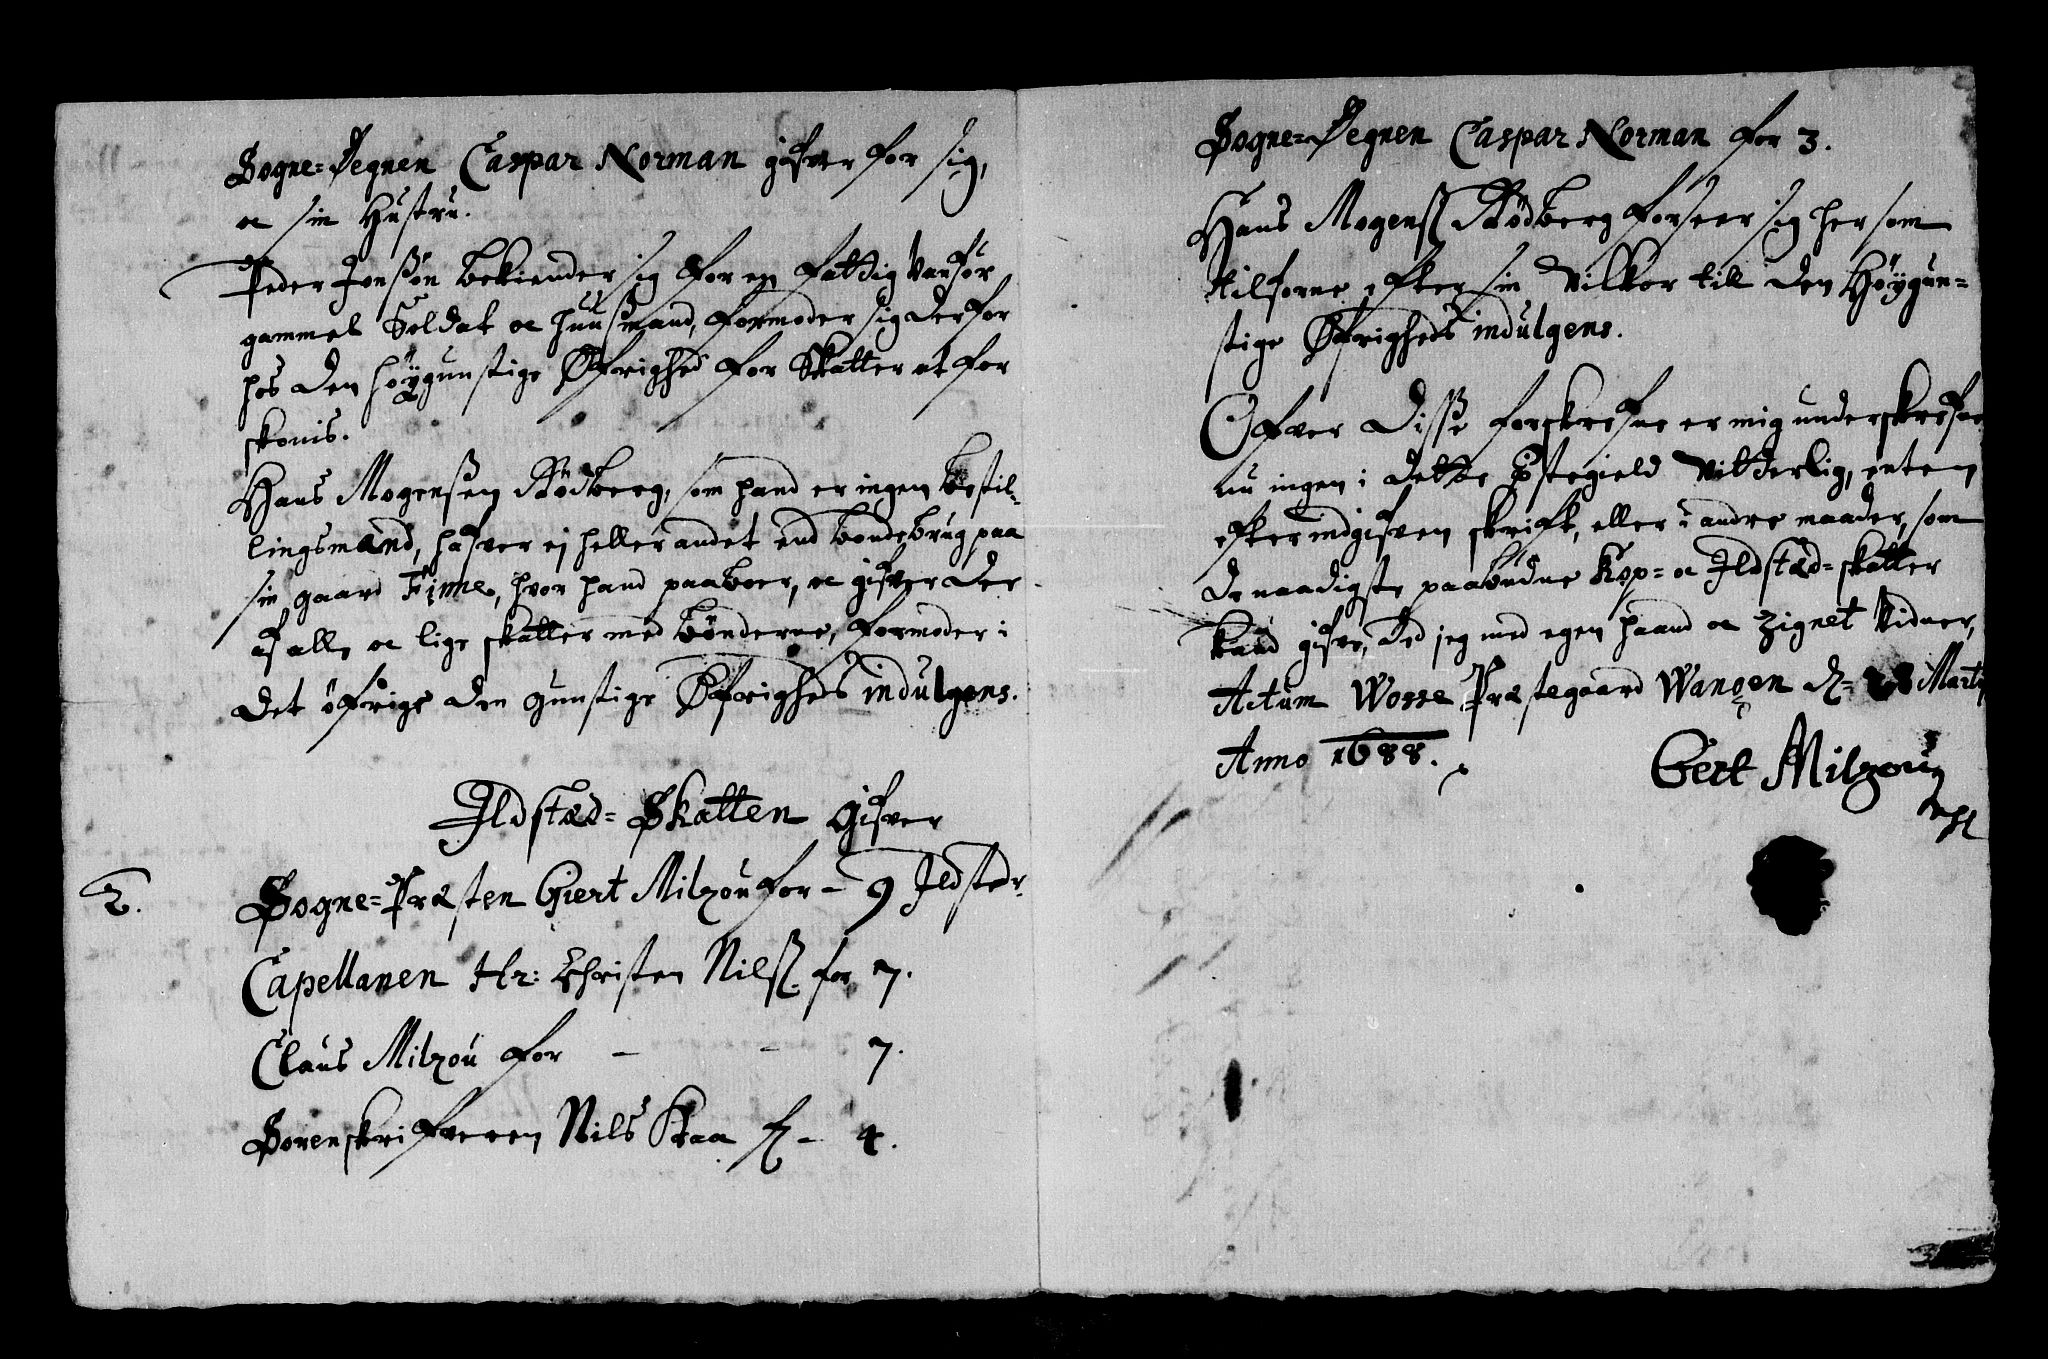 Sogne-Degnen Caspar Norman gifver for sig,
oc sin Hustru.
Peder Jonßøn bekiender sig for en fattig vanför
gammel Soldat oc huusmand, formoder sig derfor
hos den höygunstige Øfrighed for Skatter at for
skonis.
Hans Mogenßen Rödberg, som hand er ingen bestil-
lingsmand, hafver ej heller andet end bondebrug paa
sin gaard Finne, hvor hand paaboer, oc gifver der
af alle oc lige skatter med bönderne, formoder i
det öfrige den gunstige Øfrigheds indulgens.
Ildstæd-Skatten gifver
2. Sogne-Præsten Giert Milzou for - 9 Ildsteder
Capellanen Hr: Christen Nilß. for 7.
Claus Milzou for - - 7.
Sorenskrifveren Nils Knag f - 4.
Sogne-Degnen Caspar Norman for 3.
Hans Mogenß Rödberg forseer sig her som
tilforne efter sin Vilkor till den Höygun-
stige Øfrigheds indulgens.
Ofver Disse forskrefne er mig underskrefne
nu ingen i dette Præstegield Vitterlig, enten
efter indgifven skrift, eller i andre maader, som
de naadigste paabudne Kop- oc Ildstæd-skatter
kand gifve, Det jeg med egen haand oc Zignet Vidner,
Actum Wosse Præstegaard Wangen d. 28 Martij
Anno 1688.
Gert Milzou